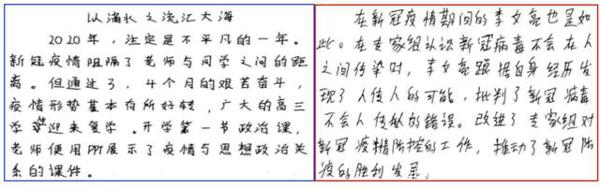 以滴水之流汇大海
2020年,注定是不平凡的一年。
新冠疫情阻隔了老师与同学之间的距
离。但通过了,4个月的艰苦奋斗,
疫情形势基本有所好转,广大的高三
学生迎来复学。开学第一节政治课,
老师便用PPT展示了疫情与思想政治关
系的课件。
在新冠疫情期间的李文亮也是如
此。在专家组认识新冠病毒不会在人
之间传染时,李文亮跟据自身经历发
现了人传人的可能,批判了新冠病毒
不会人传人的错误。改进了专家组对
新冠疫情防控的工作,推动了新冠防
疫的胜利发展。